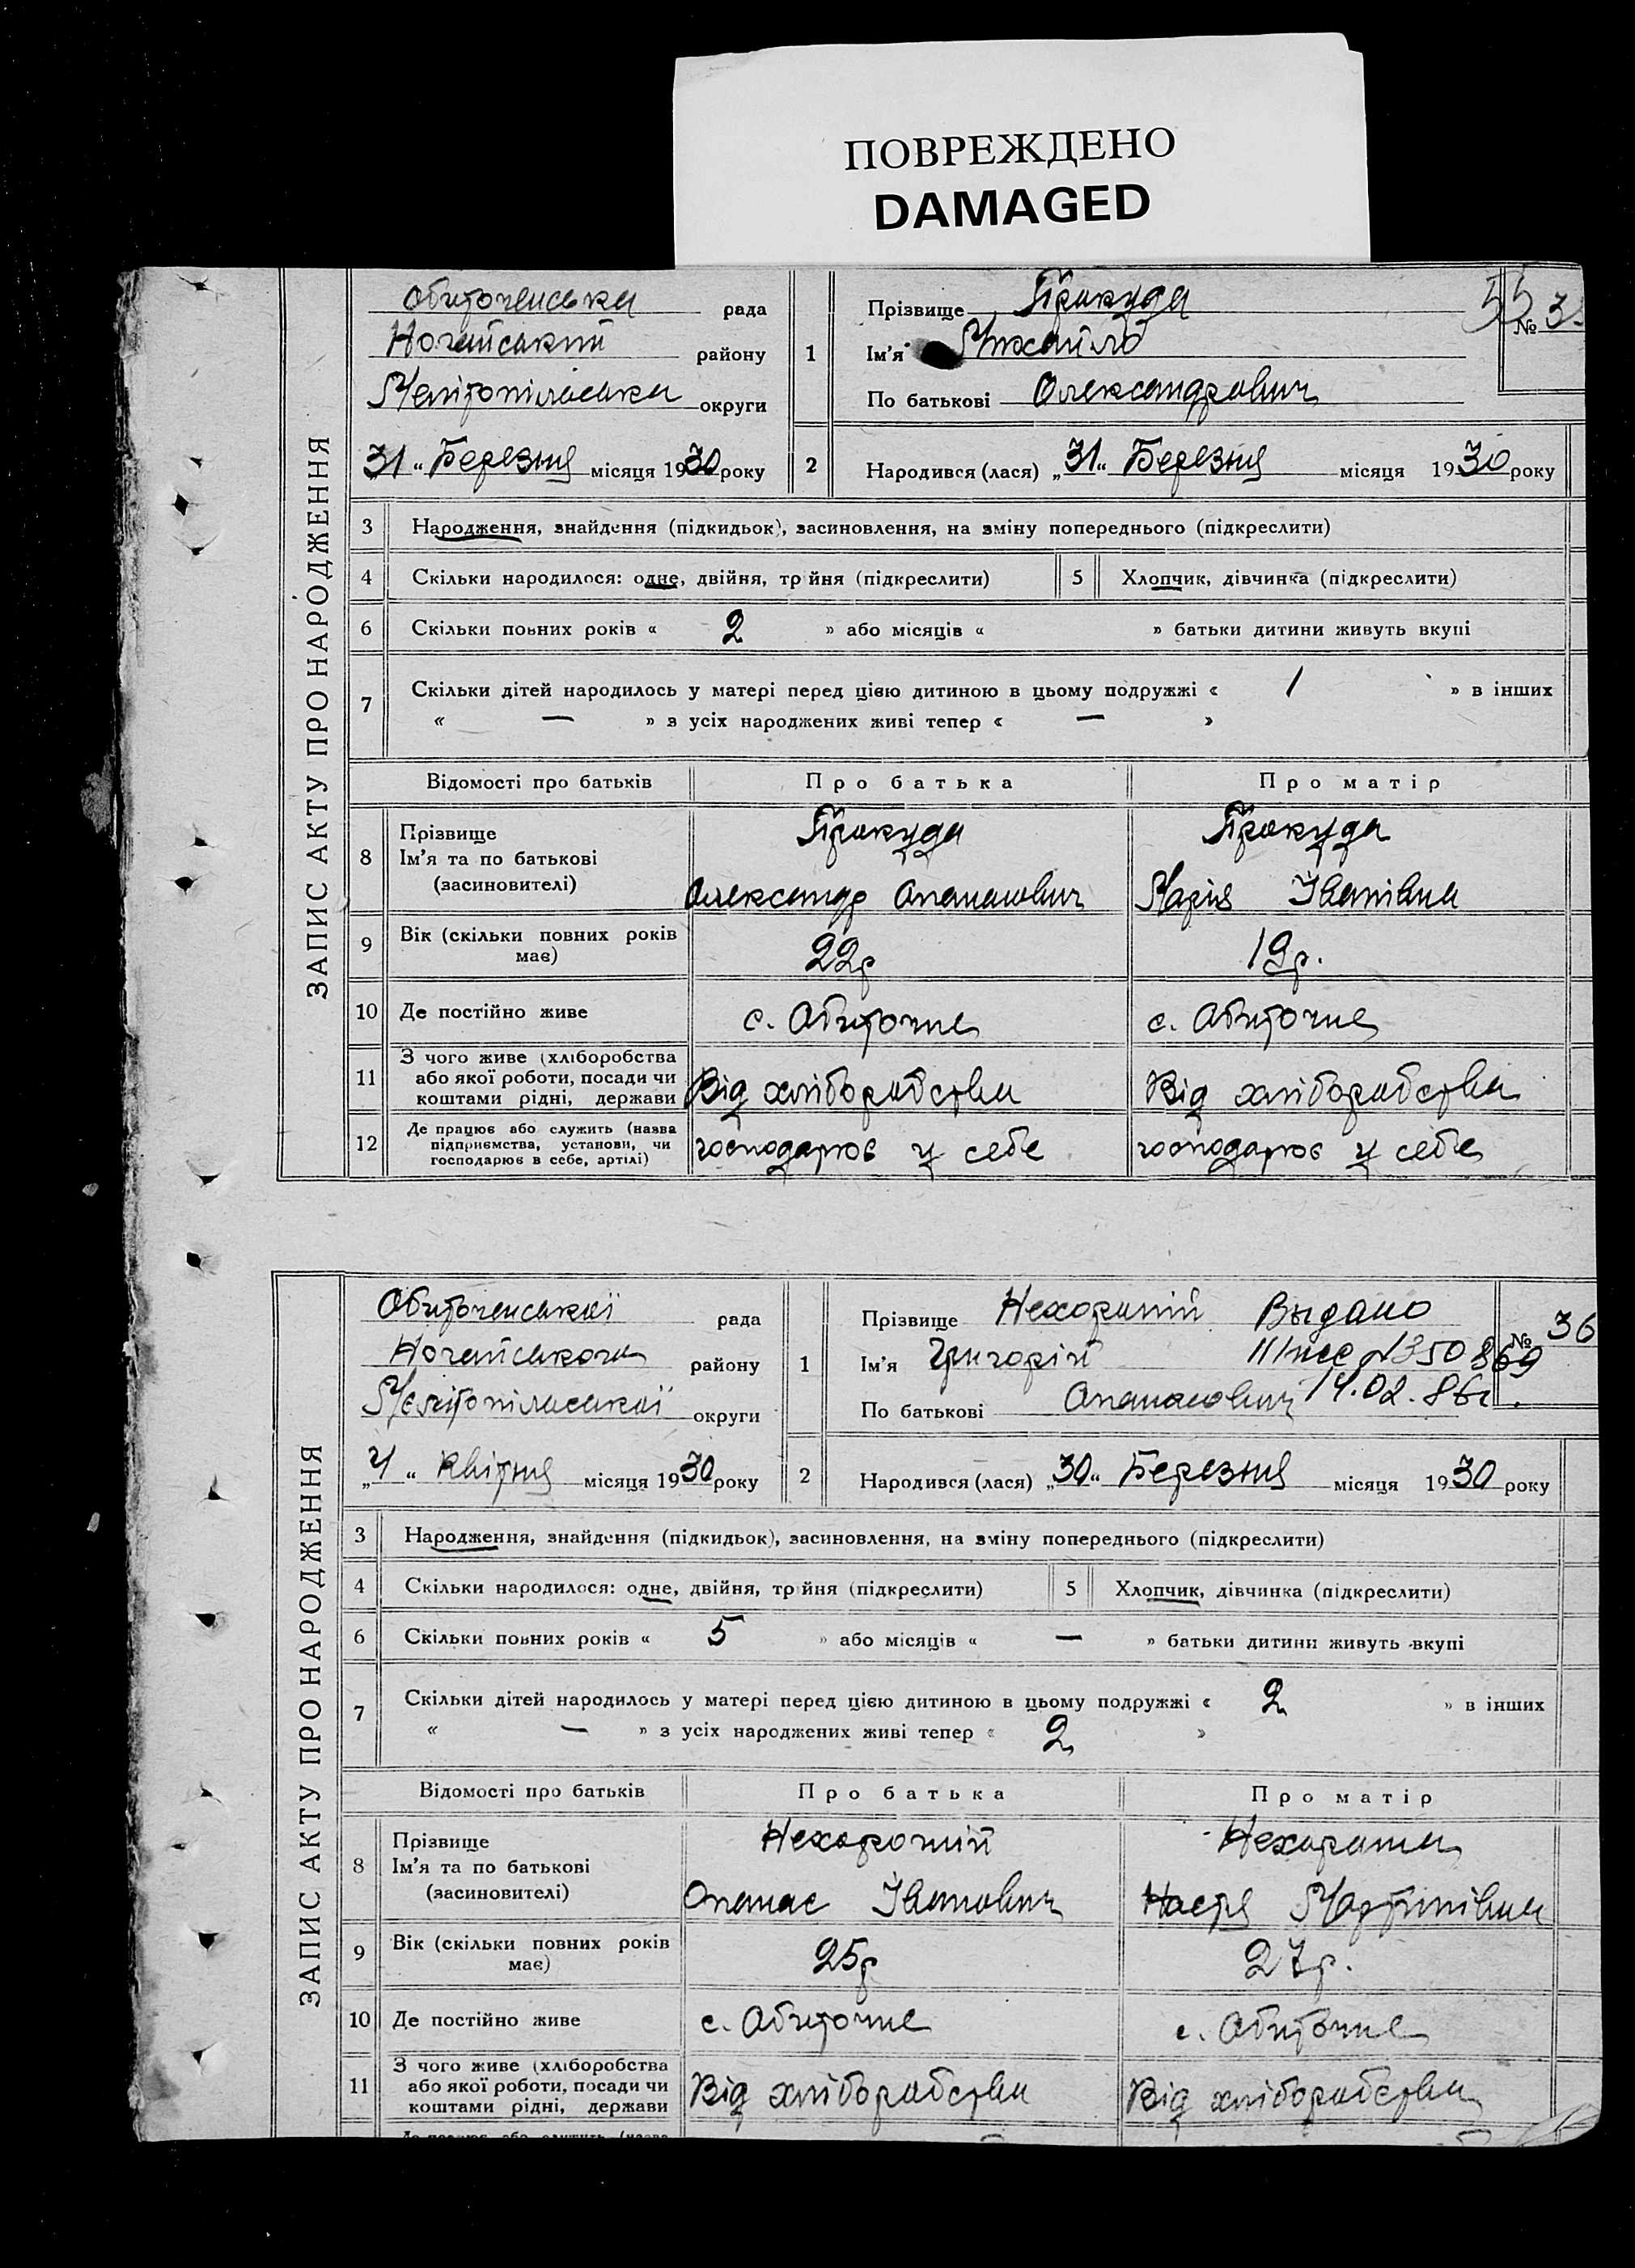 ПОВРЕЖДЕНО
DAMAGED
ЗАПИС АКТУ ПРО НАРОДЖЕННЯ
Обиточенська рада
Ногайський району
Мелітопільська округи
31 „ Березня місяця 1930 року
1 Прізвище Прокуда
Ім'я Михайло
По батькові Олександрович
55
№ 35
2 Народився (лася) „31“ Березня місяця 1930 року
3 Народження, знайдення (підкидьок), засиновлення, на зміну попереднього (підкреслити)
4 Скільки народилося: одне, двійня, трійня (підкреслити) 5 Хлопчик, дівчинка (підкреслити)
6 Скільки повних років « 2 » або місяців « » батьки дитини живуть вкупі
7 Скільки дітей народилось у матері перед цією дитиною в цьому подружжі « 1 » в інших
« — » з усіх народжених живі тепер « — »
Відомості про батьків Про батька Про матір
8 Прізвище Прокуда Прокуда
Ім'я та по батькові
(засиновителі) Олександр Опанасович Марія Іванівна
9 Вік (скільки повних років має) 22р 19р.
10 Де постійно живе с. Обиточне с. Обиточне
11 З чого живе (хліборобства
або якої роботи, посади чи
коштами рідні, держави Від хліборобства Від хліборобства
12 Де працює або служить (назва
підприємства, установи, чи
господарює в себе, артілі) господарює у себе господарює у себе
ЗАПИС АКТУ ПРО НАРОДЖЕННЯ
Обиточенської рада
Ногайського району
Мелітопільської округи
„4“ Квітня місяця 1930 року
1 Прізвище Нехороший Выдано
Ім'я Григорій №350869
По батькові Опанасович 14.02.86г.
№ 36
2 Народився (лася) „30“ Березня місяця 1930 року
3 Народження, знайдення (підкидьок), засиновлення, на зміну попереднього (підкреслити)
4 Скільки народилося: одне, двійня, трійня (підкреслити) 5 Хлопчик, дівчинка (підкреслити)
6 Скільки повних років « 5 » або місяців « — » батьки дитини живуть вкупі
7 Скільки дітей народилось у матері перед цією дитиною в цьому подружжі « 2 » в інших
« — » з усіх народжених живі тепер « 2 »
Відомості про батьків Про батька Про матір
8 Прізвище Нехороший Нехороша
Ім'я та по батькові
(засиновителі) Опанас Іванович Настя Мартинівна
9 Вік (скільки повних років має) 25р 27р.
10 Де постійно живе с. Обиточне с. Обиточне
11 З чого живе (хліборобства
або якої роботи, посади чи
коштами рідні, держави Від хліборобства Від хліборобства